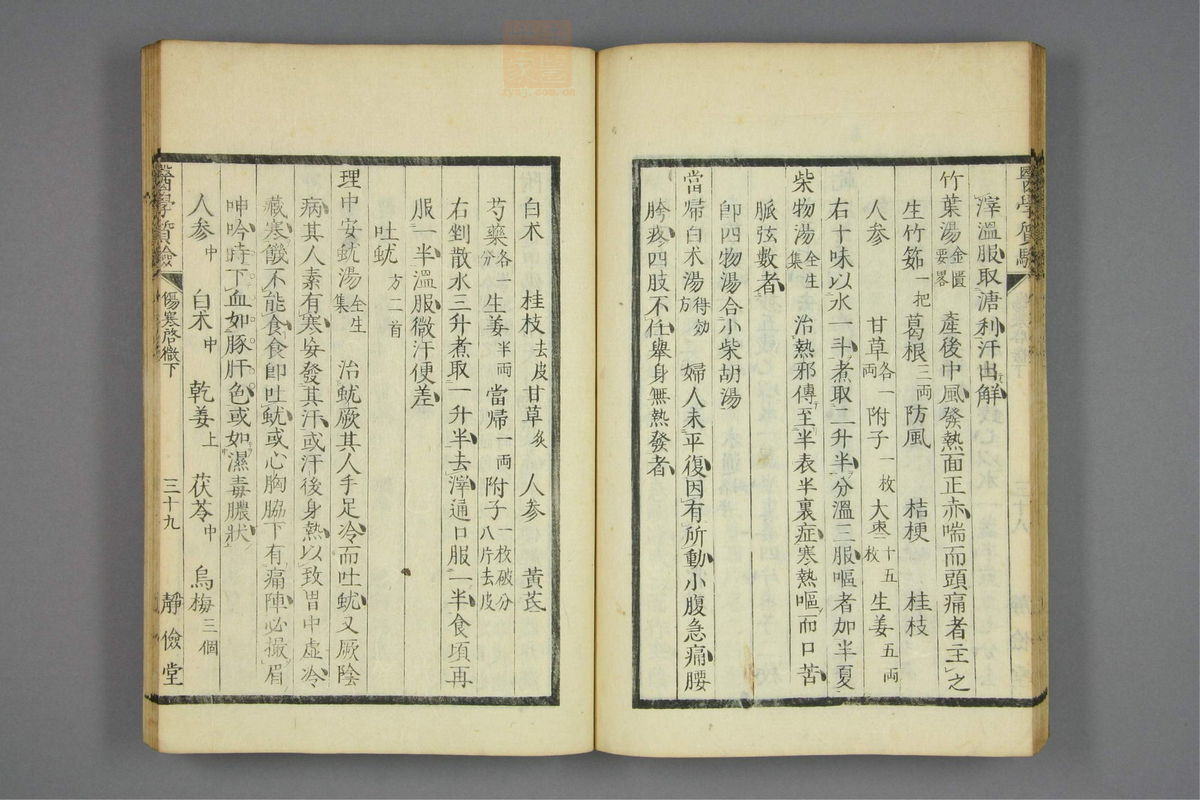 醫學質驗
滓溫服取溏利汗出解
竹葉湯金匱要畧 產後中風發熱面正赤喘而頭痛者主之
生竹筎一把 葛根三兩 防風 桔梗 桂枝
人參 甘草各一兩 附子一枚 大棗十五枚 生姜五兩
右十味以水一斗煮取二升半分溫三服嘔者加半夏
柴物湯全生集 治熱邪傳至半表半裏症寒熱嘔而口苦
脈弦數者
卽四物湯合小柴胡湯
當帰白术湯得効方 婦人未平復因有所動小腹急痛腰
胯疼四肢不任舉身無熱發者
白术 桂枝去皮 甘草炙 人參 黃芪
芍藥各一分 生姜半両 當帰一両 附子一枚破八片去皮分
右剉散水三升煮取一升半去滓通口服一半食頃再
服一半溫服微汗便差
吐蚘方二首
理中安蚘湯全生集 治蚘厥其人手足冷而吐蚘又厥陰
病其人素有寒妄發其汗或汗後身熱以致胃中虛冷
藏寒饑不能食食卽吐蚘或心胸脇下有痛陣必撮眉
呻吟時下血如豚肝色或如濕毒膿狀
人參中 白术中 乾姜上 茯苓中 烏梅三個
醫學質驗 傷寒啓微下 三十九 靜儉堂